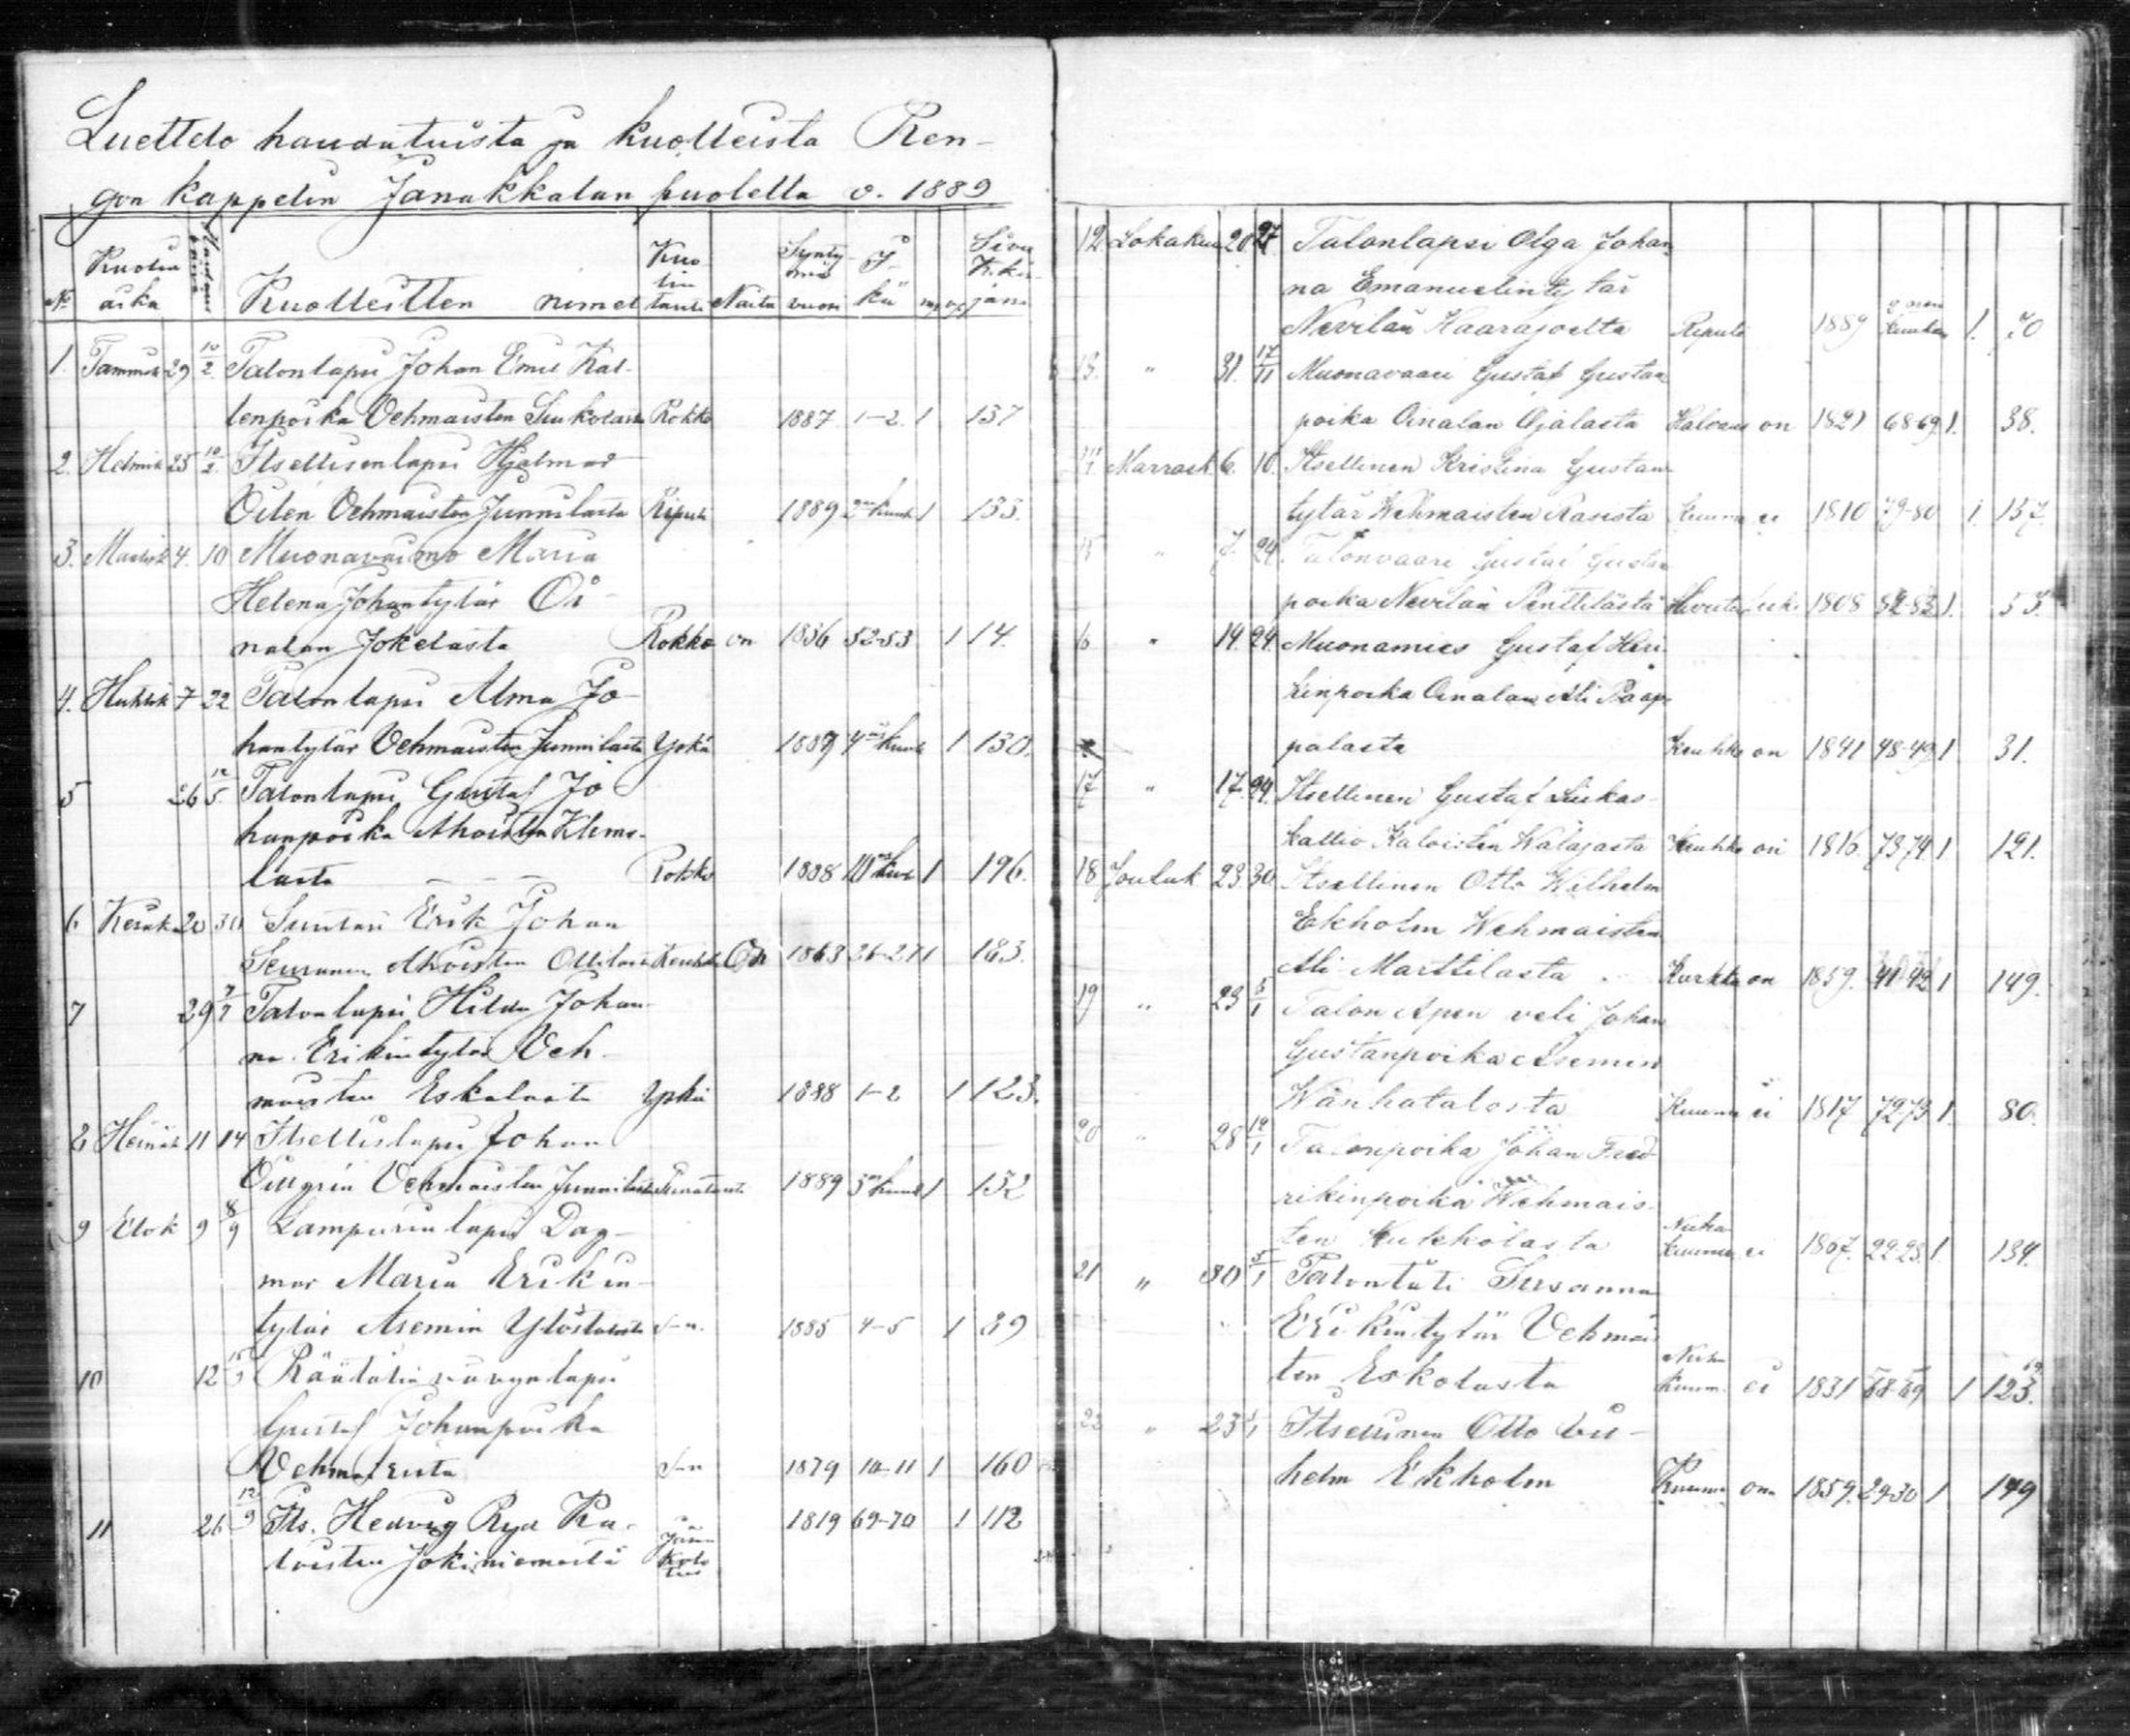 Luettelo haudatuista ja kuolleista Ren-
gon kappelin Janakkalan puolella v. 1889.
No Kuolin aika Kuolleitten nimet Kuo lin tauti Naita Synty mä vuosi I- kä mp vp Sivu K. kir- jans
1. Tammik 29 10/2 Talonlapsi Johan Emil Kal-
lenpoika Vehmaisten Rokko 1887 1-2. 1 137
2. Helmik 25 10/2 Itsellisenlapsi Hjalmar
Vehmaisten Junnilasta Ripuli 1889 1 133.
3. Maalisk 4. 10 Muonavaimo Maria
Helena Johantytär Oi-
nalan Jokelasta Rokko on 1836 52-53 1 14.
4. Huhtik 7 22 Talonlapsi Alma Jo-
hantytär Vehmaisten Junnilasta Yskä 1889 4 kuuk 1 130.
5 26 12/5 Talonlapsi Gustaf Jo
hanpoika Ahoisten
lasta Rokko 1888 1 196.
6 Kesäk 20 30 Suutari Erik Johan
Ahoisten Ottilasta Keuhko On 1863 26-27 1 183.
7 29 7/7 Talonlapsi Hilda Johan-
na Erikintytär Veh-
maisten Eskolasta Yskä 1888 1-2 1 123.
8 Heinäk 11 14 Itsellislapsi Johan
Vehmaisten Junnilasta 1889 3 kuuk 1 132
9 Elok 9 8/9 Lampurin lapsi Dag-
mar Maria Erikin-
tytär Asemin Ylöstalosta 1885 4-5 1 89
10 12 15/9 Räätälin lapsi
Gustaf Johanpoika
1879 10-11 1 160
11 26 12/9 Its. Hedvig Ryd Ka-
loisten Jokiniemestä 1819 69-70 1 112
12. Lokakuu 20 27 Talonlapsi Olga Johan
na Emanuelintytär
Nevilän Haarajoelta Ripuli 1889 1. 70
13. " 31. 17/11 Muonavaari Gustaf Gustaa
poika Oinalan Ojalasta on 1821 68-69 1. 38.
14 Marrask 6. 10. Itsellinen Kristina Gustaa
tytär Wehmaisten Rasista Kuume ei 1810 79-80 1. 137.
15 " 7. 24. Talonvaari Gustaf Gustaa
poika Nevilän Penttilästä leski 1808 1. 53.
16 " 14. 24. Muonamies Gustaf Hei
kinpoika Oinalan Ali Paap
palasta Keuhko on 1841 48-49 1 31.
17 " 17. 24. Itsellinen Gustaf Liukas-
kallio Kaloisten Walajasta Keuhko on 1816. 73 74 1 121.
18 Jouluk 23 30 Itsellinen Otto Wilhelm
Eekholm Wehmaisten
Ali-Marttilasta Kurkku on 1859. 1 149.
19 " 23 5/1 Talon Apen veli Johan
Gustanpoika Asemin
Wanhatalosta Kuume ei 1817 72 73 1. 80.
20 " 28 12/1 Talonpoika Johan Fred
rikinpoika Wehmais-
ten Kukkolasta kuume ei 1867. 22-23. 1 134.
21 " 30 5/1 Talontäti Susanna
" Erikintytär Vehmais
ten Eskolasta kuum. ei 1831 1 123.
22 " 23 Itsellinen Otto Vil-
helm Ekholm Kuume on 1859. 29-30 1 149